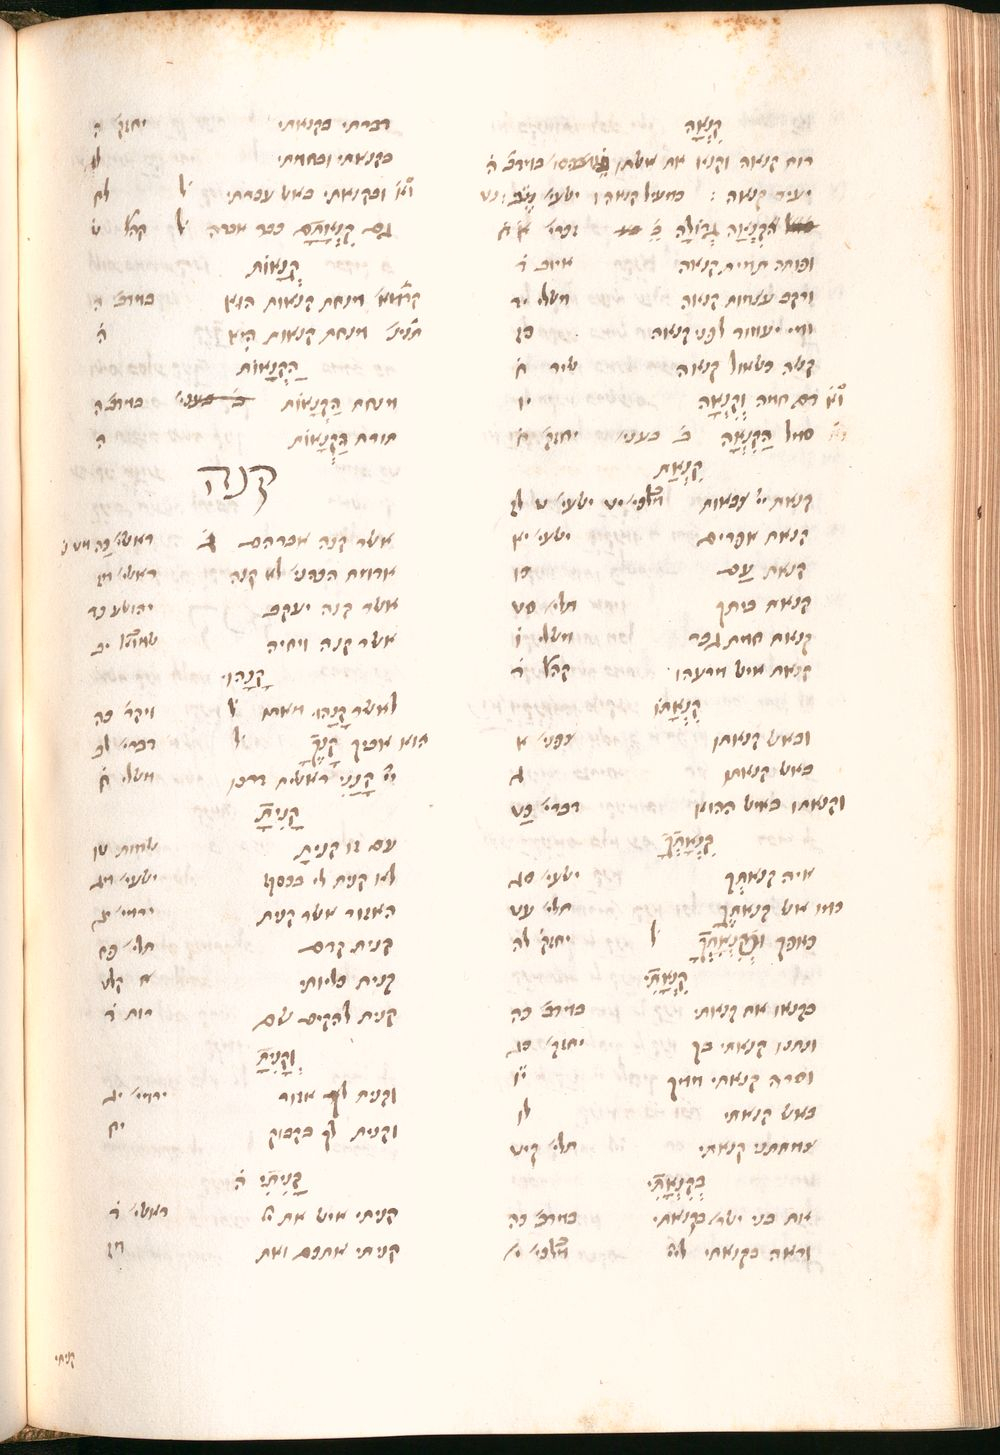 קִנְאָה
רוח קנאה וקנא את אשתו במדב׳ ה
יעיר קנאה : כמעיל קנאה ישעי׳ מב נט
קִנְאָה גְדוֹלָה ב׳ זכרי׳ א ח
ופותה תמית קנאה איוב ה
ורקב עצמות קנאה משלי יד
ומי יעמוד לפני קנאה כז
קשה כשאול קנאה שיר ח
דם חמה וְקִנְאָה יו
סמל הַקִּנְאָה ב׳ בעני׳ יחזק׳ ח
קִנְאַת
קנאת יי׳ צבאות מלכי׳ יט ישעי׳ ט לז
קנאת אפרים ישעי׳ יא
קנאת עם כו
קנאת ביתך תלי׳ סט
קנאה חמת גבר משלי ו
קנאת איש מרעהו קהל׳ ד
קִנְאָתוֹ
ובאש קנאתו צפני׳ א
באש קנאתו ג
וקנאתו באיש ההוא דברי׳ כט
קִנְאָתֶךָ
איה קנאתך ישעי׳ סג
כמו אש קנאתך תלי׳ עט
כאפך וּכְקִנְאָתְךָ ל׳ יחזק׳ לה
קִנְאָתִי
בקנאו את קנאתי במדב׳ כה
ונתתי קנאתי בך יחזק׳ כג
וסרה קנאתי ממך יו
באש קנאתי לו
צמתתני קנאתי תלי׳ קיט
בְּקִנְאָתִי
את בני ישר׳ בקנאתי במדב׳ כה
וראה בקנאתי ליי׳ מלכי׳ י
דברתי בקנאתי יחזק׳ ה
בקנאתי ובחמתי לו
ובקנאתי באש עברתי ל׳ לח
גם קִנְאָתָם כבר אבדה ל׳ קהל׳ ט
קְנָאוֹת
מנחת קנאות הוא במדב׳ ה
מנחת קנאות היא ה
הַקְּנָאוֹת
מנחת הַקְּנָאוֹת ב׳ בעני׳ במדב׳ ה
תורת הַקְּנָאוֹת ה
קנה
אשר קנה אברהם ג׳ ראשי׳ כה מט נ
אדמת הכהני׳ לא קנה ראשי׳ מז
אשר קנה יעקב יהושע כד
אשר קנה ויחיה שמואל יב
קָנָהוּ
לאשר קָנָהוּ מאתו ל׳ ויקר׳ כה
הוא אביך קָּנֶךָ ל׳ דברי׳ לב
יי׳ קָנָנִי ראשית דרכו משלי ח
קָנִיתָ
עם זו קנית שמות טו
לא קנית לי בכסף ישעי׳ מג
האזור אשר קנית ירמי׳ יג
קנית קדם תלי׳ עד
קנית כליותי קלט
קנית להקים שם רות ד
וְקָנִיתָ
וקנית לך אזור ירמי׳ יג
וקנית לך בקבוק יח
קָנִיתִי ה
קניתי איש את יי׳ ראשי׳ ד
קניתי אתכם ואת מז
קניתי